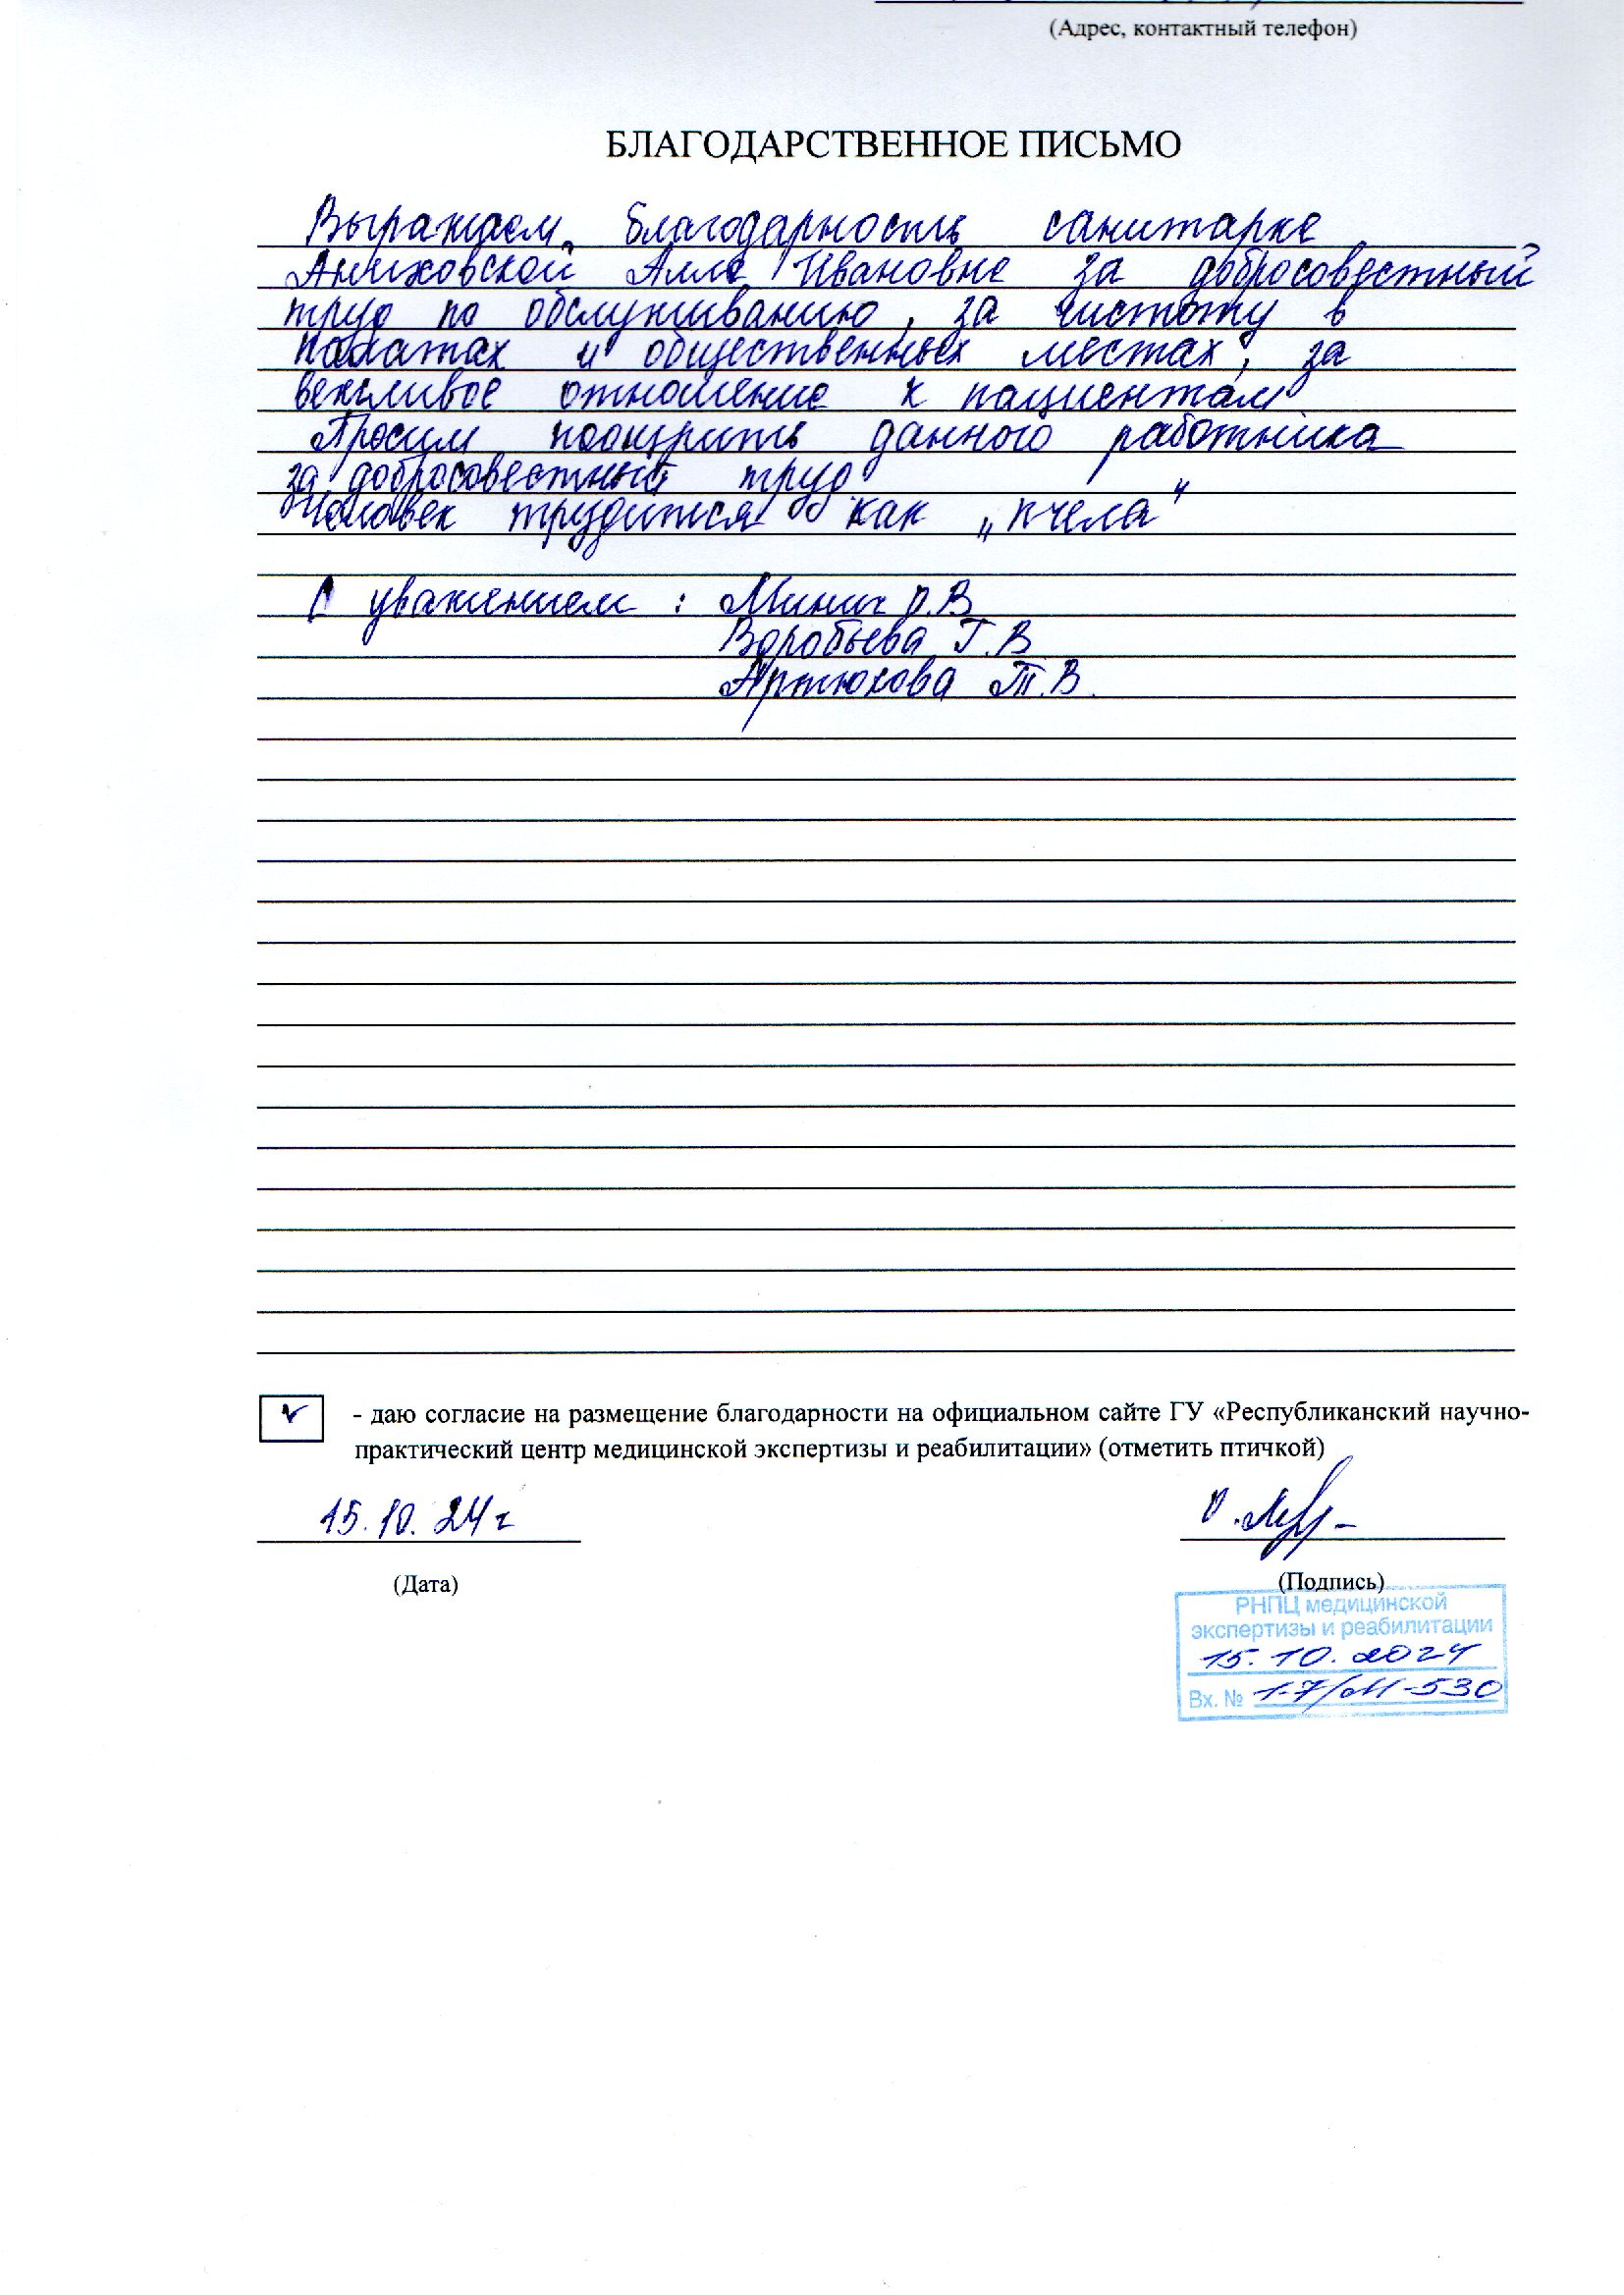 (Адрес, контактный телефон)
БЛАГОДАРСТВЕННОЕ ПИСЬМО
Выражаем благодарность санитарке
Алле Ивановне за добросовестный
труд по обслуживанию, за чистоту в
палатах и общественных местах, за
вежливое отношение к пациентам
Просим поощрить данного работника
за добросовестный труд.
Человек трудится как „пчела“
С уважением: Минич О.В
Воробьева Г.В
Артюхова Т.В.
- даю согласие на размещение благодарности на официальном сайте ГУ «Республиканский научно-
практический центр медицинской экспертизы и реабилитации» (отметить птичкой)
15.10.24 г
(Дата)
(Подпись)
РНПЦ медицинской
экспертизы и реабилитации
15.10.2024
Вх. № 1-7/ -530